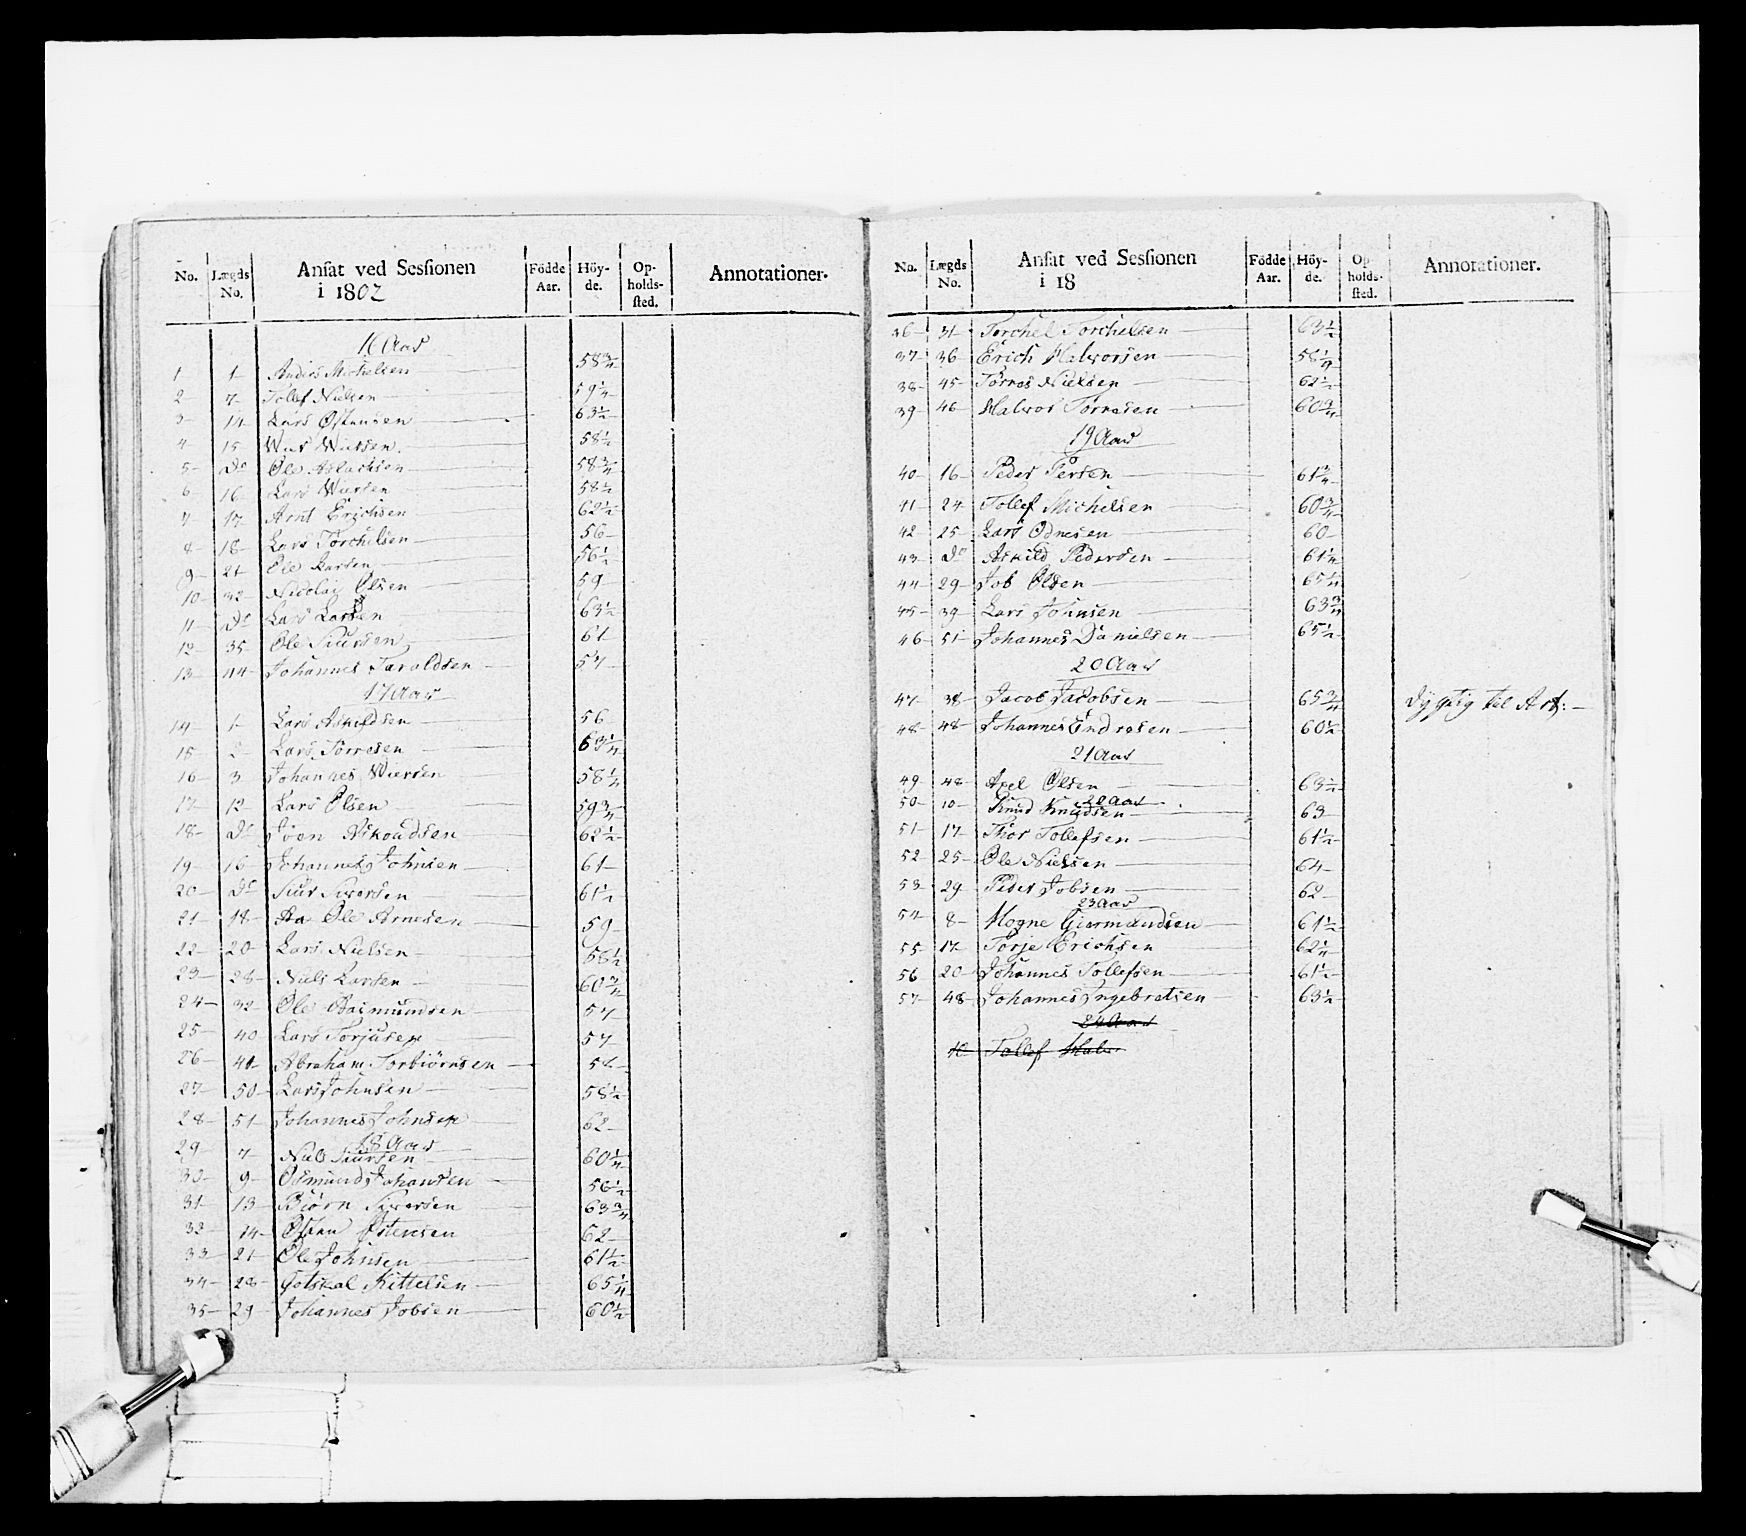 No. Lægds No. Ansat ved Sessionen i 1802 Födde Aar. Höyde. Opholdssted. Annotationer.
16 Aar
1 1 Anders Michelsen 58 3/4
2 7 Tollef Nielsen 59 1/4
3 14 Lars Østensen 63 1/2
4 15 58 1/2
5 Do Ole Aslachsen 58 3/4
6 16 Lars 58 1/2
7 17 Arnt Erichsen 62 1/2
8 18 Lars Torchelsen 56
9 21 Ole Larsen 56 1/2
10 32 Nicolay Olsen 59
11 Do Lars Larsen 63 1/2
12 35 Ole Siursen 61
13 44 Johannes Taraldsen 57
17 Aar
14 1 Lars Askildsen 56
15 2 Lars Torresen 63 1/4
16 3 Johannes 58 1/4
17 12 Lars Olsen 59 3/4
18 Do Joen 62 1/2
19 16 Johannes Johnsen 61
20 Do Siur Siversen 61 1/2
21 18 Ole Arnesen 59
22 20 Lars Nielsen 58 1/2
23 28 Niels Larsen 60 3/4
24 32 Ole Rasmundsen 57
25 40 Lars Torjusen 57
26 41 Abraham Torbiörnsen 58
27 50 Lars Johnsen 58 1/2
28 51 Johannes Johnsen 62
18 Aar
29 7 Niels Siursen 60 1/4
30 9 Osmund Johansen 56 1/2
31 13 Biörn Siversen 63 3/4
32 14 Østen Østensen 62
33 21 Ole Johnsen 61 1/2
34 28 Gotskal Kittelsen 65 1/4
35 29 Johannes Jobsen 60 1/2
No. Lægds No. Ansat ved Sessionen i 18 Födde Aar. Höyde. Opholdssted. Annotationer.
36 31 Torchel Torchelsen 63 1/2
37 36 Erich Halvorsen 58 1/4
38 45 Torres Nielsen 62 1/2
39 46 Halvor Torresen 60 3/4
19 Aar
40 16 Peder Persen 61 3/4
41 24 Tollef Michelsen 60 3/4
42 25 Lars Odnesen 60
43 Do Askild Pedersen 61 1/4
44 29 Job Olsen 65 1/4
45 39 Lars Johnsen 63 3/4
46 51 Johannes Danielsen 65 1/2
20 Aar
47 38 Jacob Jacobsen 65 3/4 Dygtig til Art:
48 48 Johannes Endresen 60 1/2
21 Aar
49 48 Axel Olsen 63 1/2
22 Aar
50 10 Knud Knudsen 63
51 17 Thor Tollefsen 61 1/2
52 25 Ole Nielsen 64
53 29 Peder Jobsen 62
23 Aar
54 8 Mogne Giermundsen 61 1/2
55 17 Torje Erichsen 62 1/4
56 20 Johannes Tollefsen 61 1/2
57 48 Johannes Ingebretsen 63 1/2
24 Aar
10 Tollef Halv